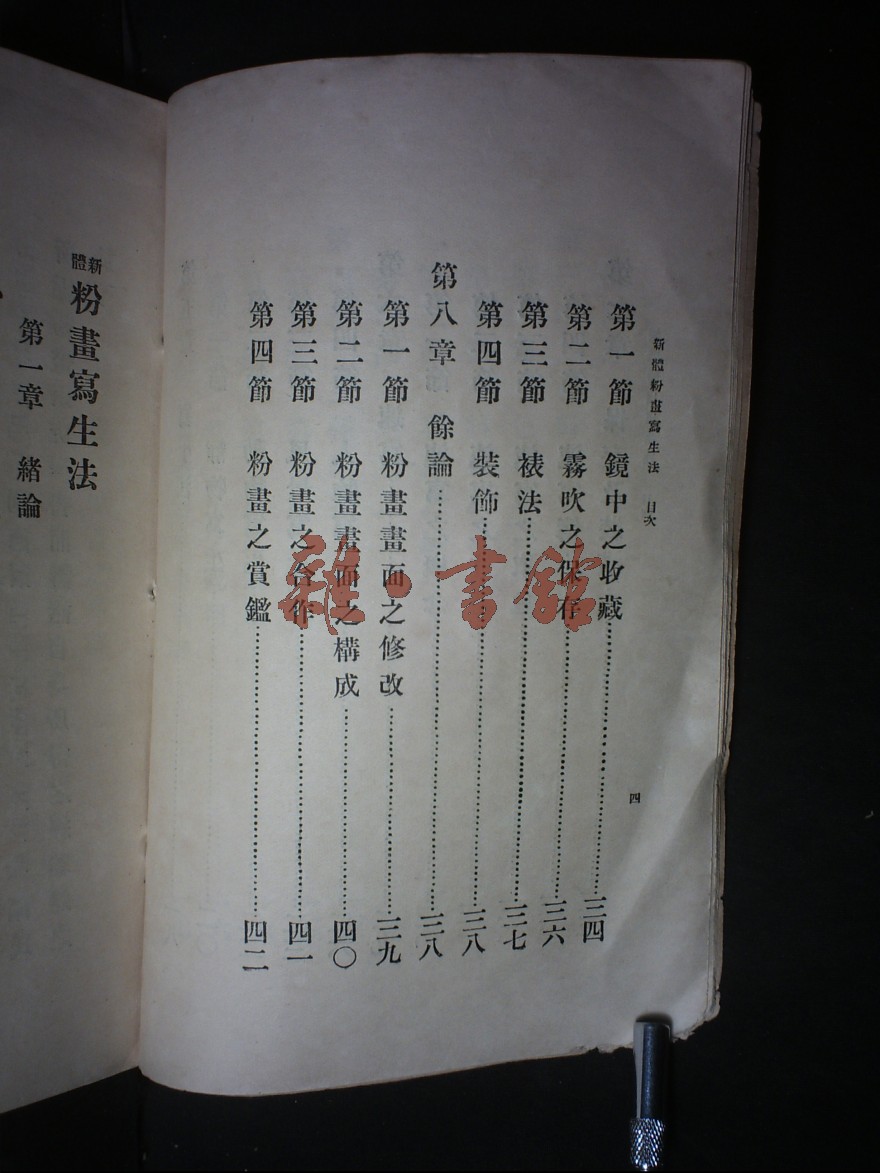 新體粉畫寫生法 目次
四
第一節 鏡中之收藏……三四
第二節 霧吹之保存……三六
第三節 裱法……三七
第四節 裝飾……三八
第八章 餘論……三八
第一節 粉畫畫面之修改……三九
第二節 粉畫畫面之構成……四〇
第三節 粉畫之合作……四一
第四節 粉畫之賞鑑……四二
新體粉畫寫生法
第一章 緒論
雜·書館